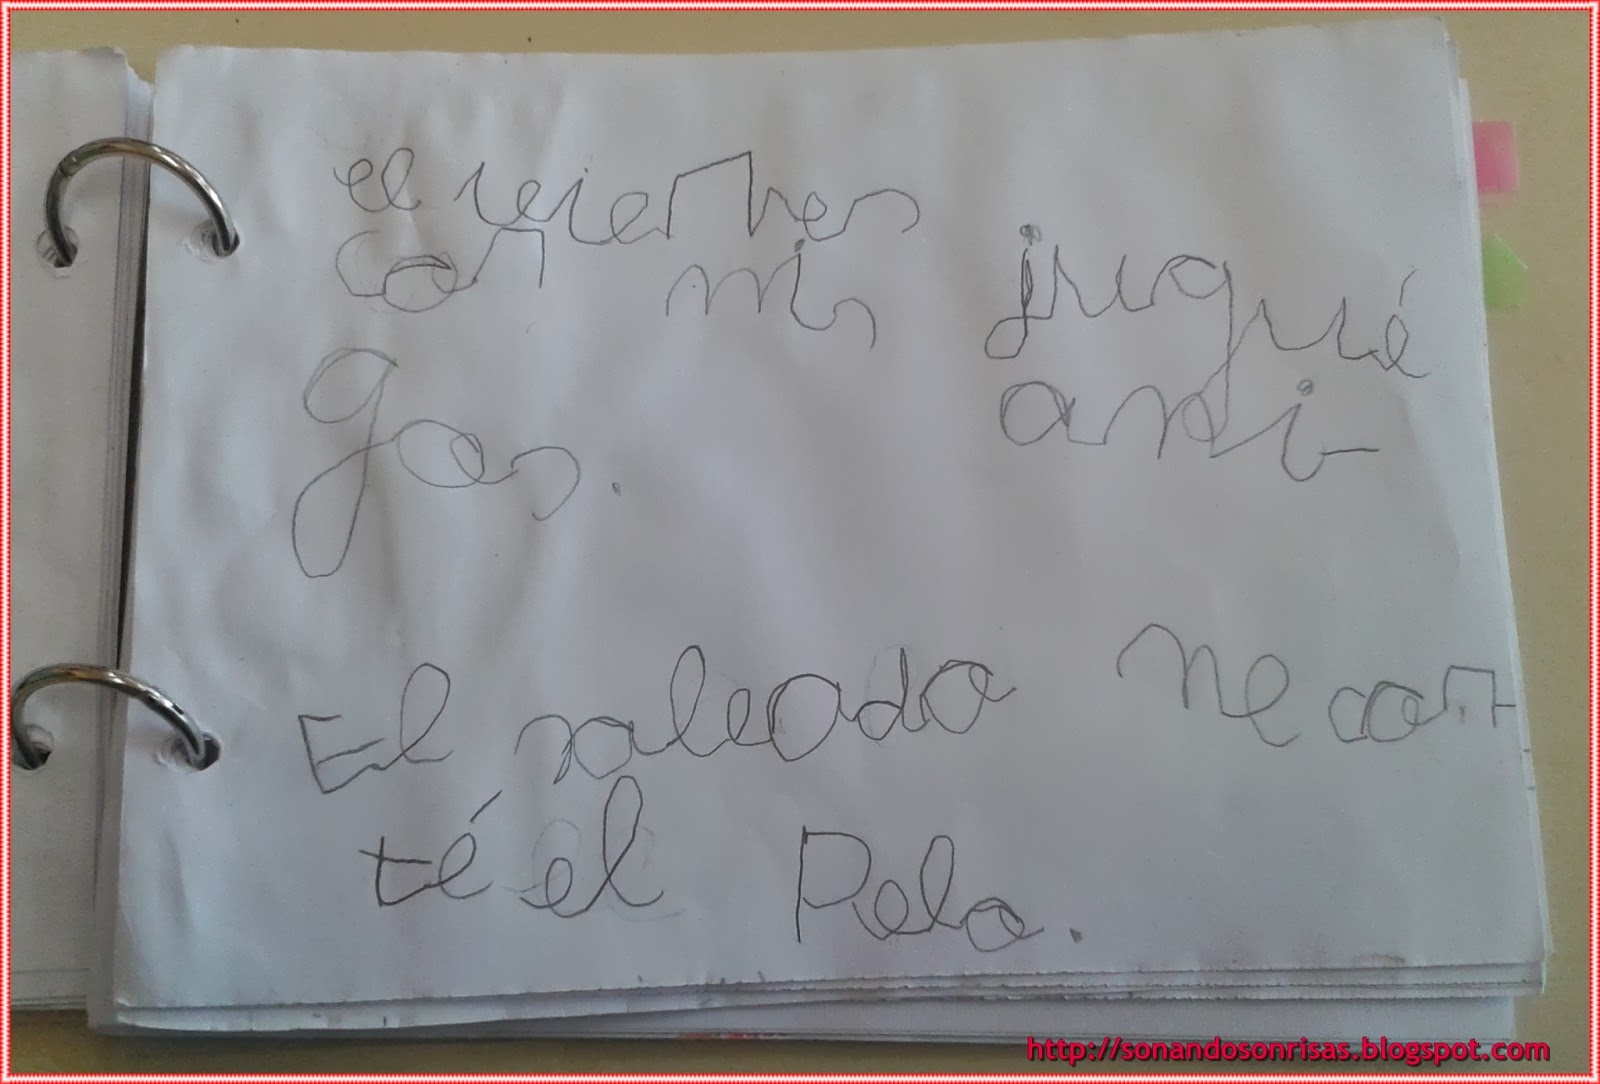 el viernes jugué
con mis ami-
gas.
El saleado me cor-
té el Pelo.
http://sonandosonrisas.blogspot.com